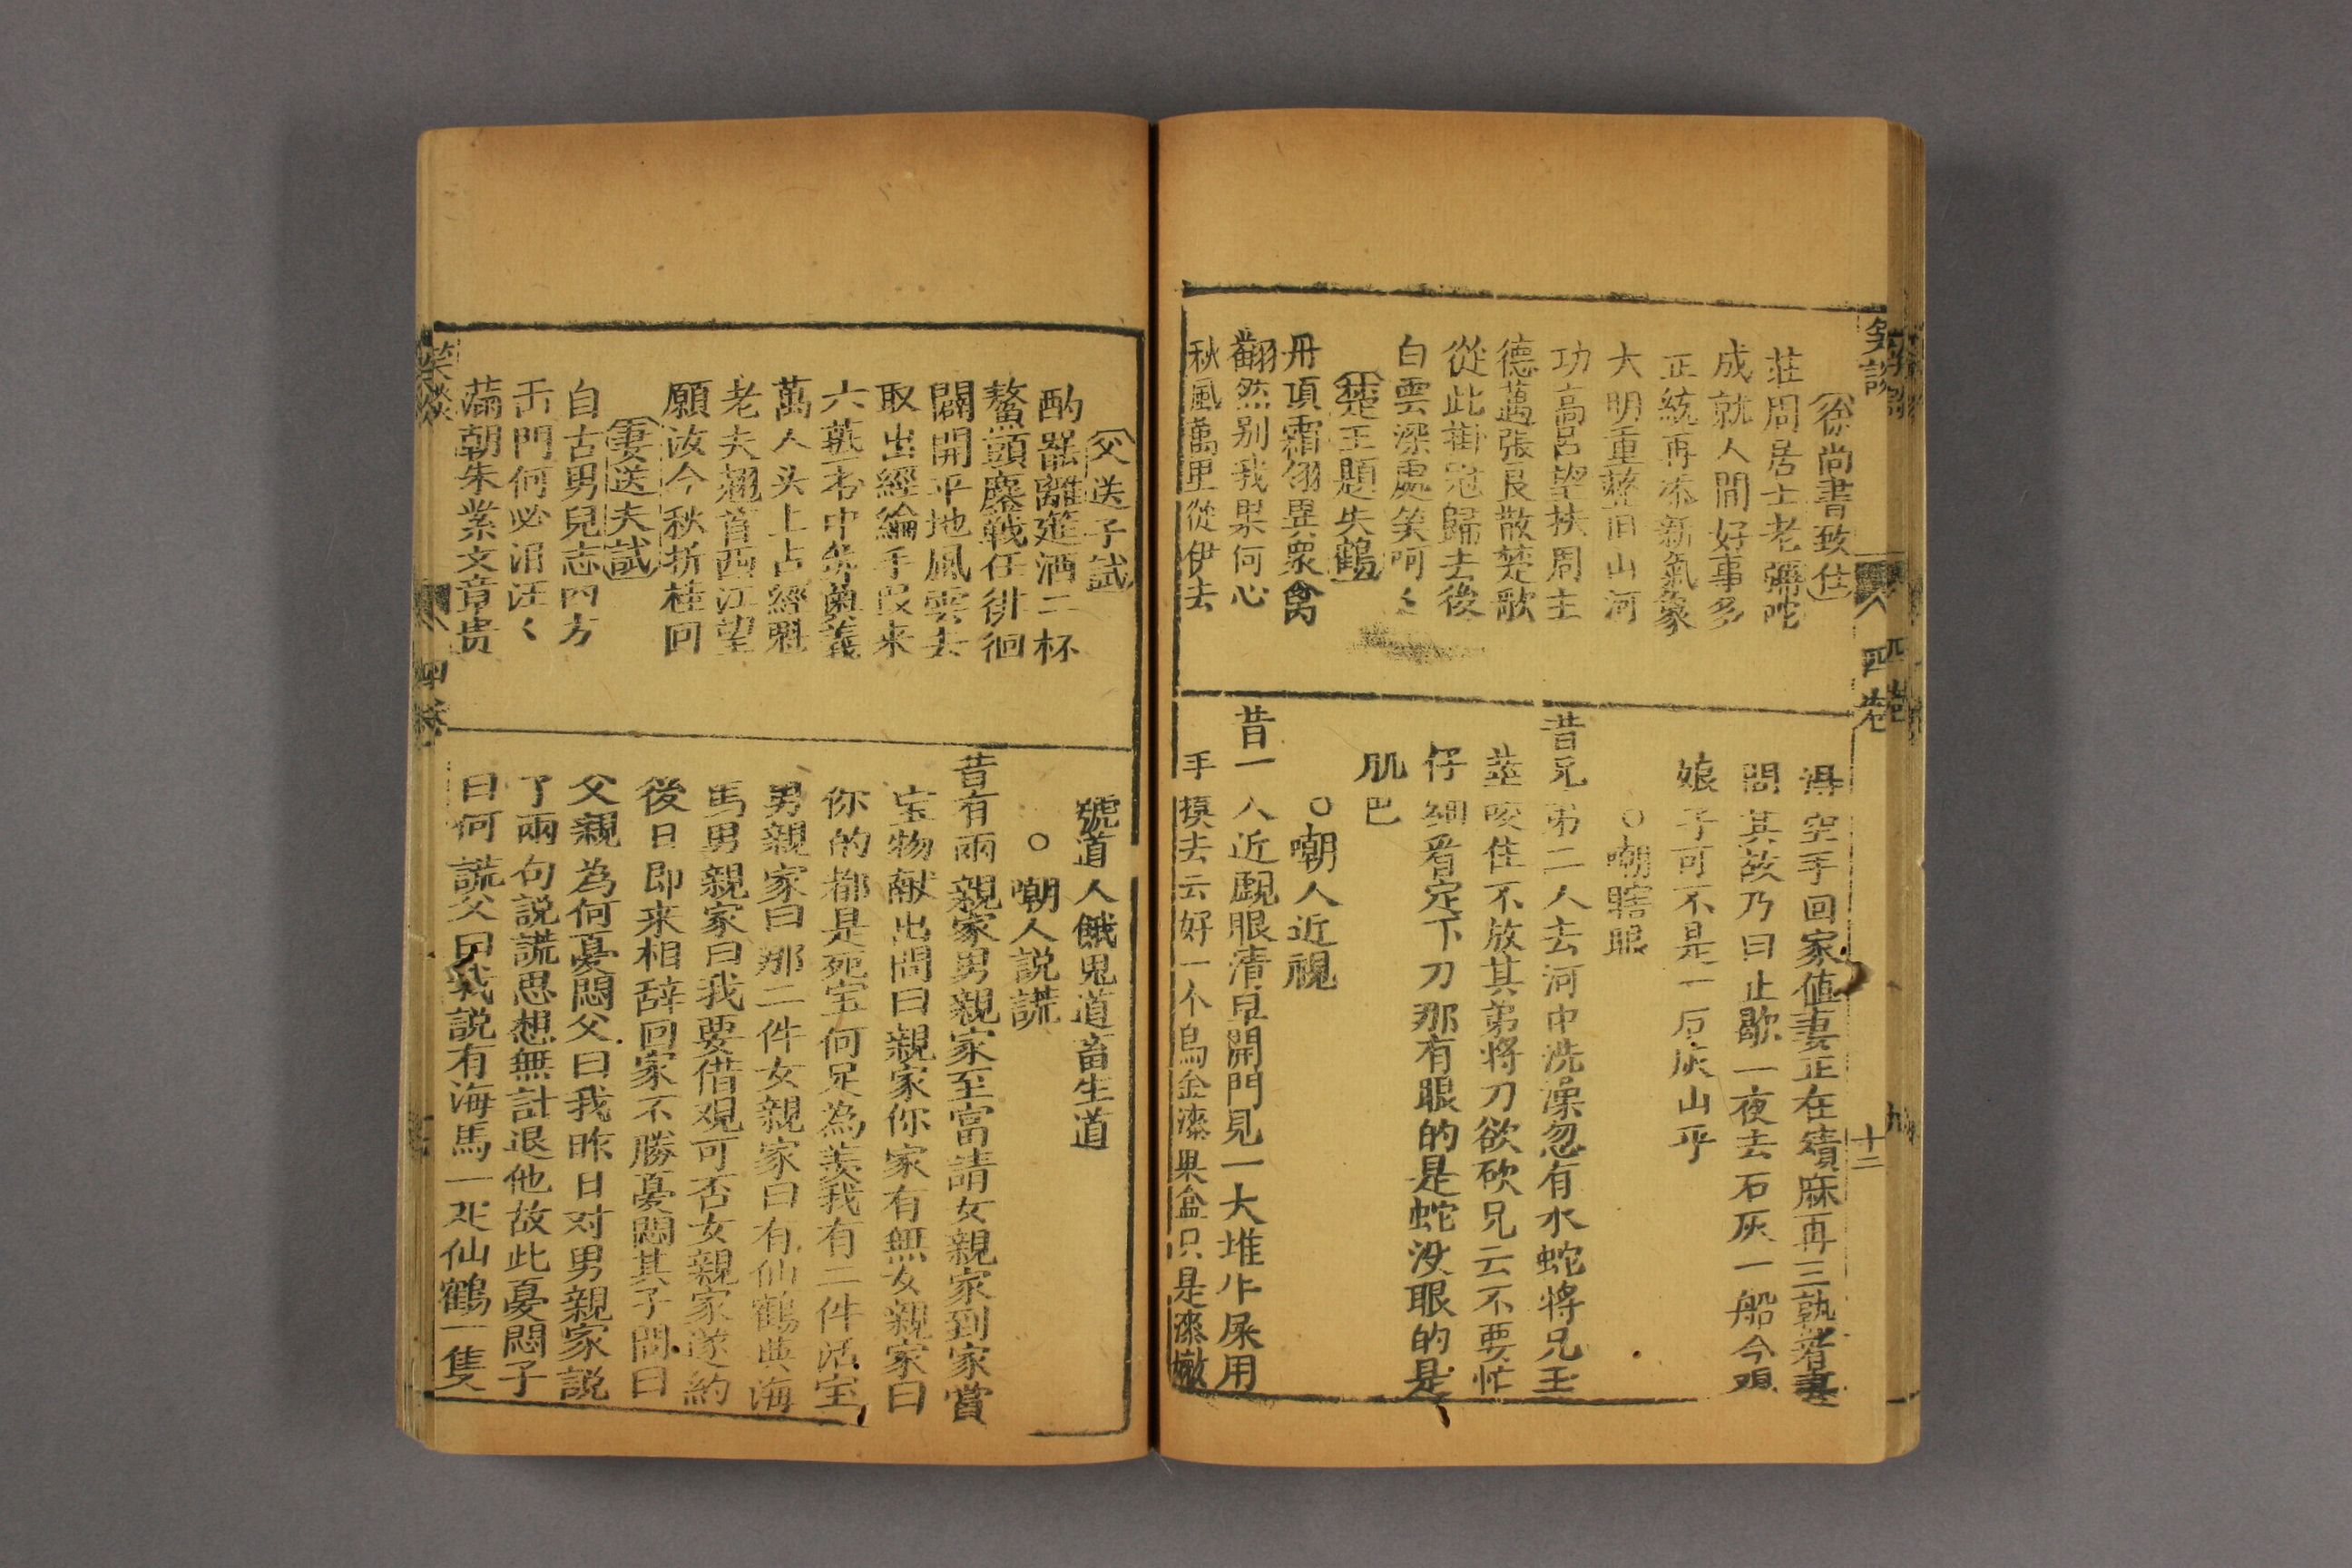 徐尚書致仕
莊周居士老彌陀
成就人間好事多
正統再添新氣象
大明重整旧山河
功高呂望扶周主
德邁張良散楚歌
從此掛冠歸去後
白雲深處笑呵〻
楚王題失鶴
丹頂霜翎異衆禽
翻然别我果何心
秋風萬里從伊去
得空手回家值妻正在績麻再三執着其
問其故乃曰止歇一夜去石灰一船今
娘子可不是一石灰山乎
○嘲瞎眼
昔兄弟二人去河中洗澡忽有水蛇將兄玉
莖咬住不放其弟將刀欲砍兄云不要忙
仔細看定下刀那有眼的是蛇没眼的是
肌巴
○嘲人近視
昔一人近覷眼清早開門見一大堆牛屎用
手摸去云好一个烏金漆果盒只是漆嫩
笑談
四卷
十二
父送子試
酌罷離筵酒二杯
鰲頭鏖戰任徘徊
闢開平地風雲去
取出經綸手段来
六藝
萬人头上占經魁
老夫翹首西江望
願汝今秋折桂回
妻送夫試
自古男兒志四方
出門何必泪汪〻
滿朝朱紫文章贵
號道人餓鬼道畜生道
○嘲人説謊
昔有兩親家男親家至富請女親家到家賞
宝物献出問曰親家你家有無女親家曰
你的都是死宝何足為羡我有二件活宝
男親家曰那二件女親家曰有仙鶴與海
馬男親家曰我要借观可否女親家遂約
後日即来相辞回家不勝憂悶其子問曰
父親為何憂悶父曰我昨日对男親家説
了兩句説謊思想無計退他故此憂悶子
曰何謊父曰我説有海馬一疋仙鶴一隻
笑談
四卷